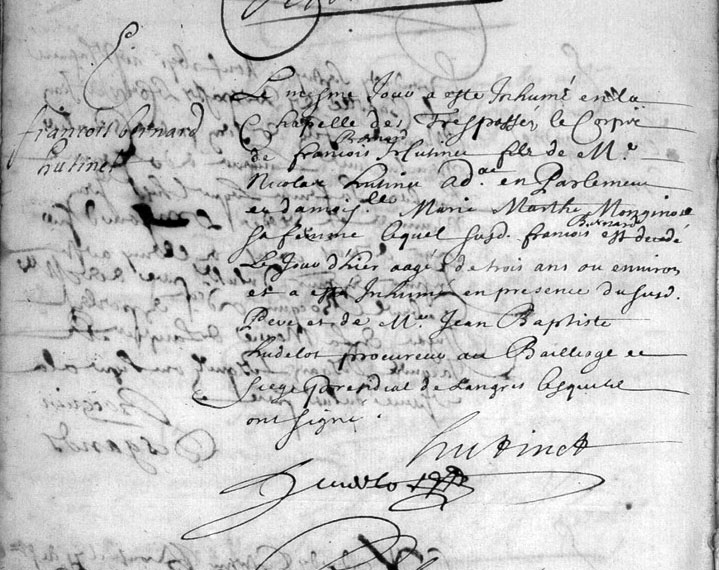 francois bernard
hutinet
Le mesme Jour a esté Inhumé en la
Chapelle des Trespassez le Corps
Bernard
de francois hutinet fils de Mr
Nicolas hutinet adat en Parlement
et damoislle Marie Marthe Monginot
Bernard
sa femme lequel susd. francois est decedé
Le Jour d'hier aagé de trois ans ou environ
et a esté Inhumé en presence du susd.
Pere et de Me Jean Baptiste
hudelot procureur au Bailliage et
siege presidial de Langres lesquels
ont signé.
hutinet
hudelot